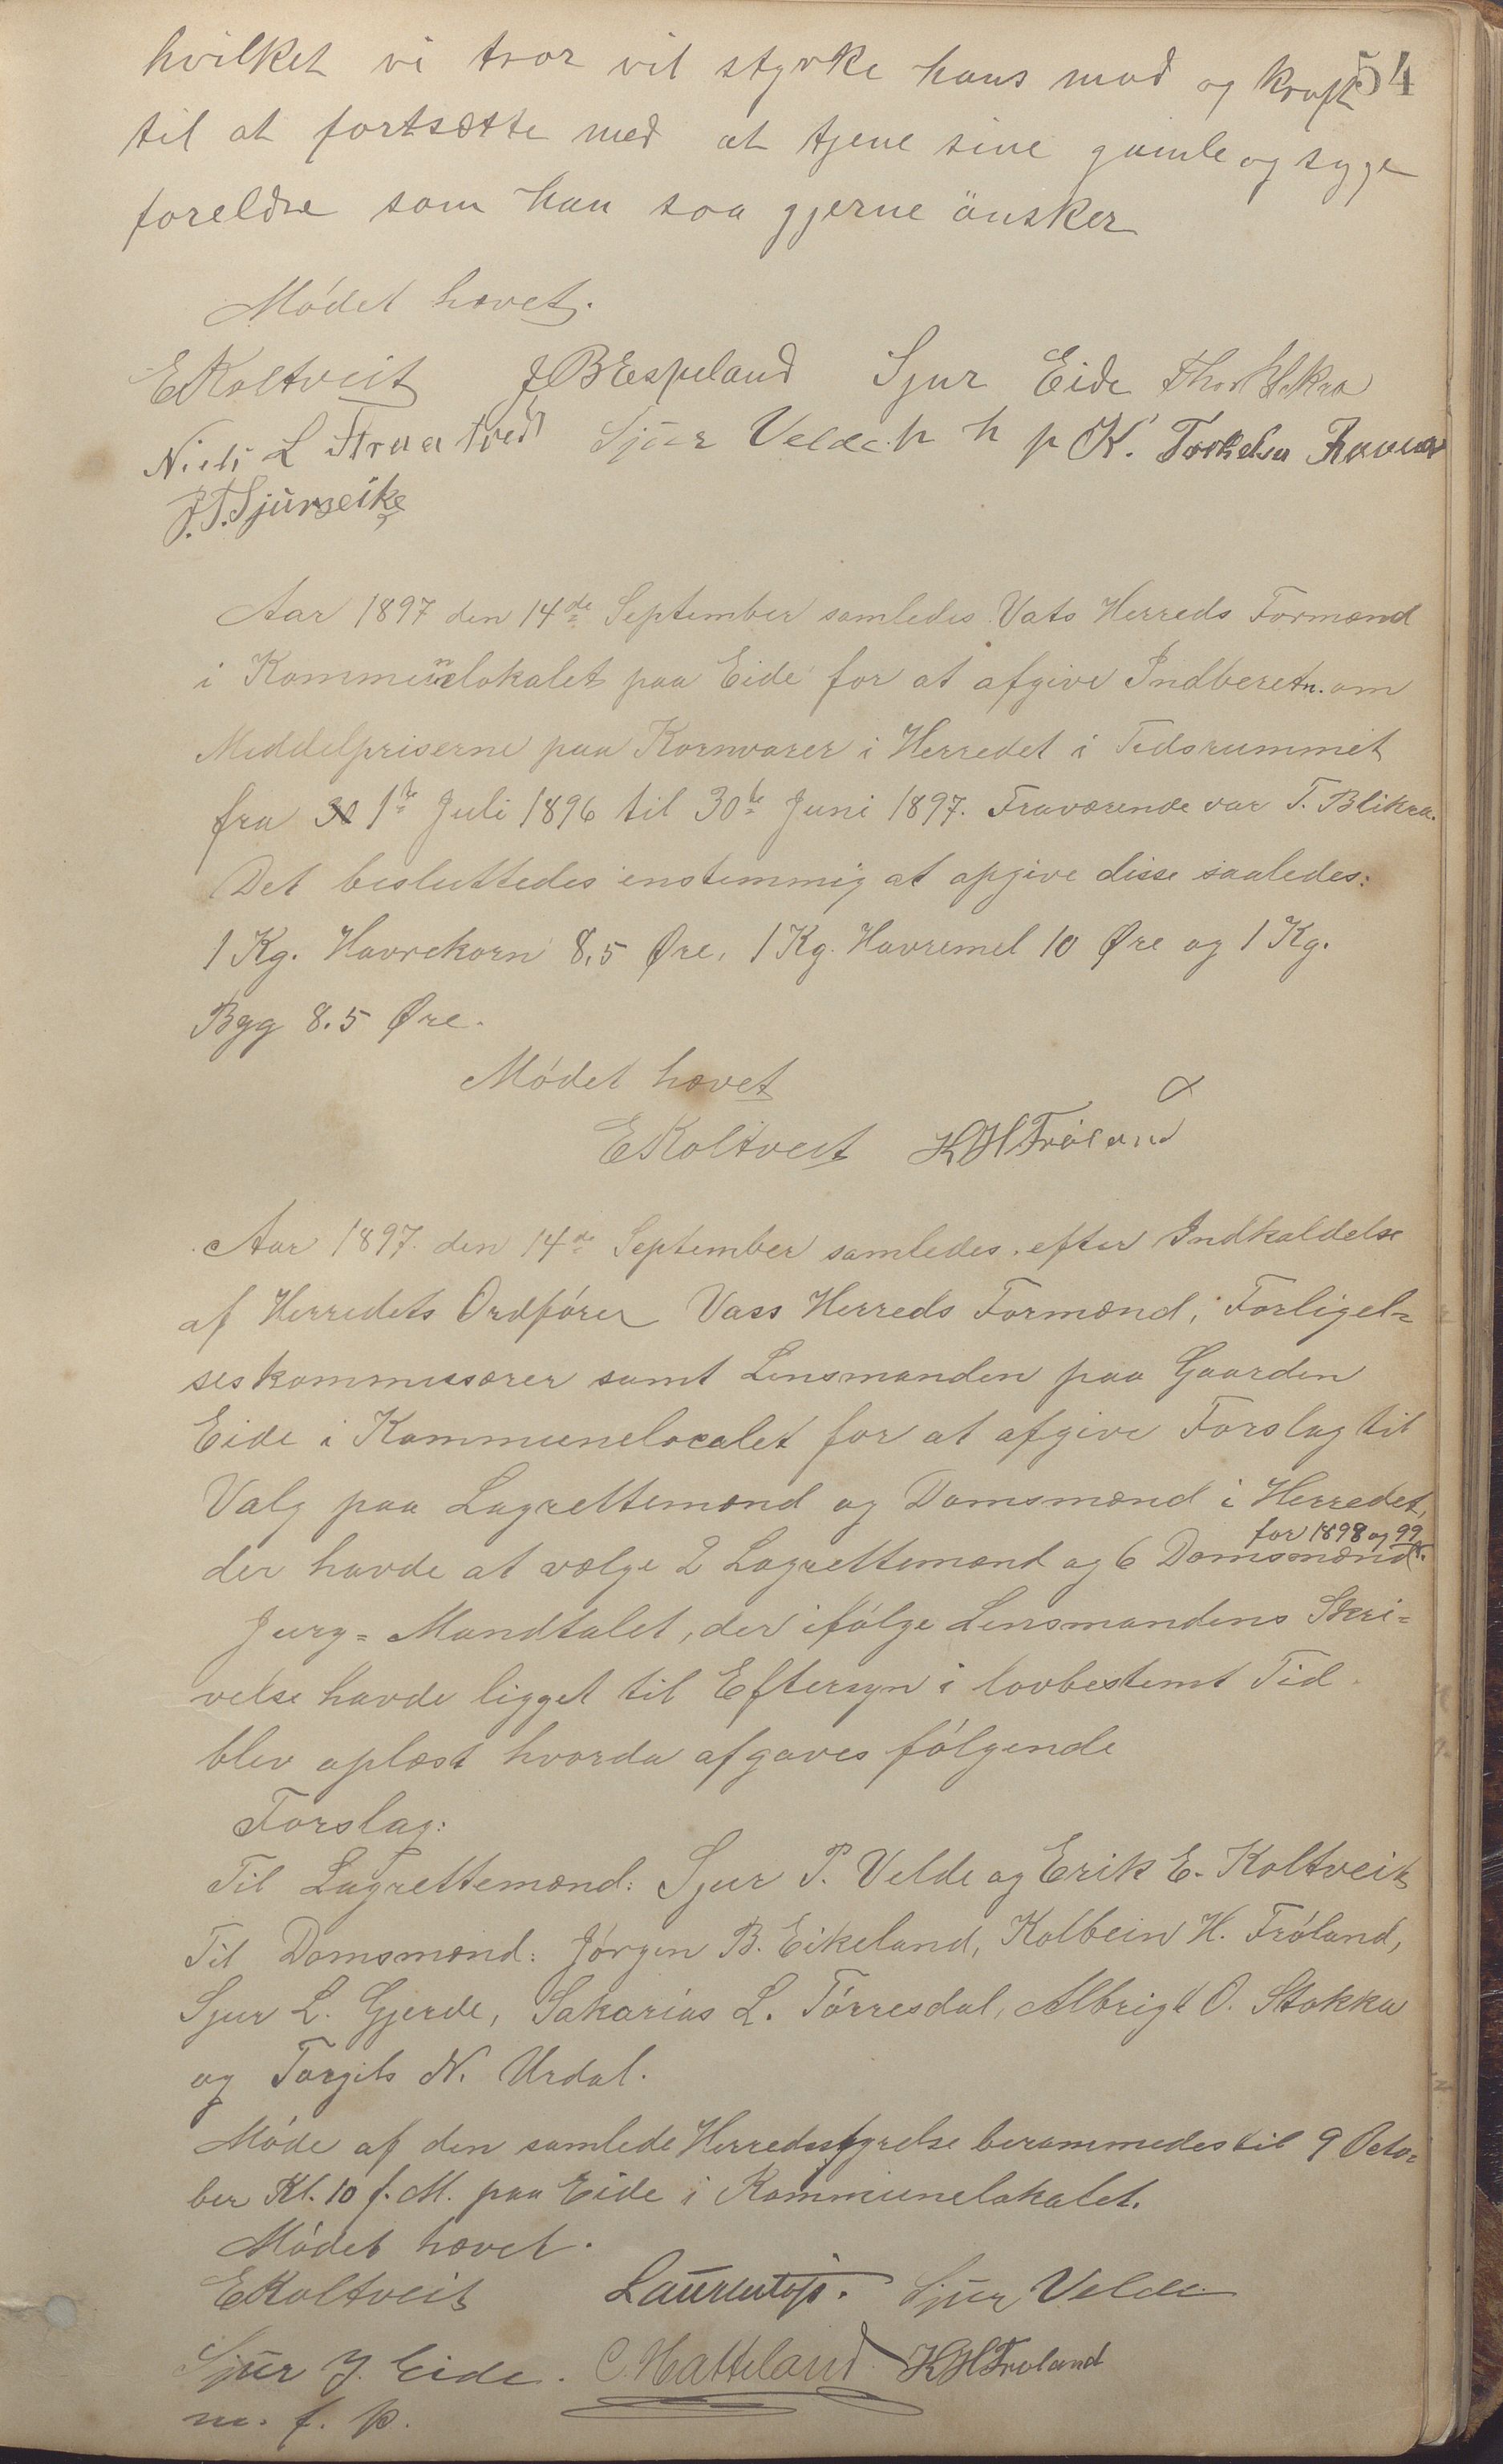 54
hvilket vi tror vil styrke hans mod og kraft
til at fortsætte med at tjene sine gamle og syge
foreldre som han saa gjerne önsker
Mødet hævet.
EKoltveit J B Espeland Sjur Eide
Niels L Sjur Velde. p h p K. Torkelsen
J. T. Sjurseike
Aar 1897 den 14de September samledes Vats Herreds Formænd
i Kommunelokalet paa Eide for at afgive Indberetn. om
Middelpriserne paa Kornvarer i Herredet i Tidsrummet
fra 1te Juli 1896 til 30te Juni 1897. Fraværende var T. Blikra.
Det besluttedes enstemmig at opgive disse saaledes:
1 Kg. Havrekorn 8,5 Øre, 1 Kg. Havremel 10 Øre og 1 Kg.
Byg 8.5 Øre.
Mødet hævet
EKoltveit KHFröland
Aar 1897 den 14de September samledes efter Indkaldelse
af Herredets Ordfører Vass Herreds Formænd, Forligel=
seskommissærer samt Lensmanden paa Gaarden
Eide i Kommunelocalet for at afgive Forslag til
Valg paa Lagrettemænd og Domsmænd i Herredet,
for 1898 og 99
der havde at vælge 2 Lagrettemænd og 6 Domsmænd.
Jury=Mandtalet, der ifølge Lensmandens Skri=
velse havde ligget til Eftersyn i lovbestemt Tid
blev oplæst hvorda afgaves følgende
Forslag:
Til Lagrettemænd: Sjur P. Velde og Erik E. Koltveit
Til Domsmænd: Jørgen B. Eikeland, Kolbein H. Frøland,
Sjur L. Gjerde, Sakarias L. Tørresdal, Albrigt O. Stokka
og Torgils N. Urdal.
Møde af den samlede Herredsstyrelse berammedes til 9 Octo=
ber Kl. 10 f. M. paa Eide i Kommunelokalet.
Mødet hævet.
EKoltveit Sjur Velde
Sjur J. Eide. C. Hatteland KHFroland
m. f. p.